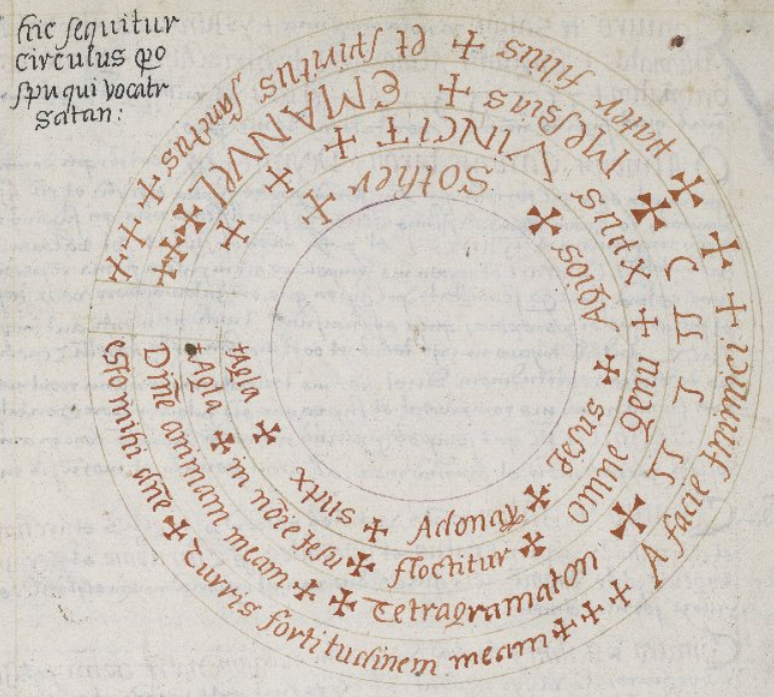 hic sequitur
circulus
spu qui vocatr
Satan:
esto mihi dñe ✠ Turris fortitudinem meam ✠ ✠ ✠ A facie Inimici ✠ ✠ ✠ pater filius ✠ et spiritus sanctus ✠ ✠ ✠ ✠
Dñe animam meam ✠ ✠ Tetragramaton ✠ ✠ Messias ✠ EMANVEL ✠ ✠ ✠ ✠
Agla ✠ in nõie Iesu ✠ floctitur ✠ omne genu ✠ ✠ xpus VINCIT ✠ ✠ ✠ ✠
Agla ✠ xpus ✠ Adonay ✠ Jesus ✠ Agios ✠ Sother ✠